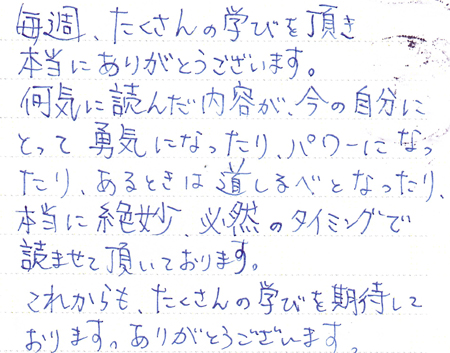 毎週、たくさんの学びを頂き
本当にありがとうございます。
何気に読んだ内容が、今の自分に
とって勇気になったり、パワーになっ
たり、あるときは道しるべとなったり、
本当に絶妙、必然のタイミングで
読ませて頂いております。
これからも、たくさんの学びを期待して
おります。ありがとうございます。